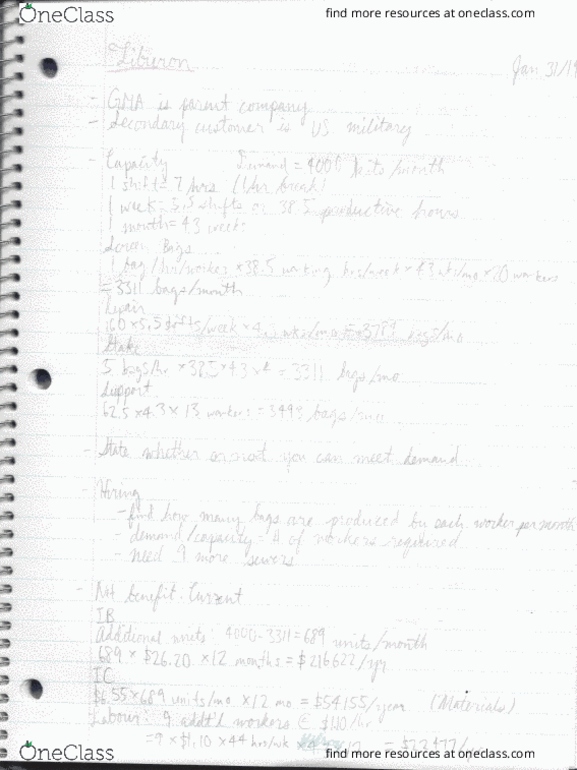 OneClass
find more resources at oneclass.com
Liburon
Jan 31/19
- GMA is parent company
- Secondary customer is US military
- Capacity Demand = 4000 units/month
1 shift = 7 hrs (1hr break)
1 week = 5.5 shifts or 38.5 productive hours
1 month = 4.3 weeks
Screen Bags
1 bag/hr/worker × 38.5 working hrs/week × 4.3 wks/mo × 20 workers
= 3311 bags/month
Repair
160 × 5.5 shifts/week × 4.3 wks/mo = 3784 bags/mo
Stake
5 bags/hr × 38.5 × 4.3 = 3311 bags/mo
Support
62.5 × 4.3 × 13 workers = 3493 bags/mo
- State whether or not you can meet demand
- Hiring
- find how many bags are produced by each worker per month
- demand/capacity = # of workers required
- need 9 more sewers
- Net benefit: Current
IB
Additional units: 4000-3311=689 units/month
689 × $26.20 × 12 months = $216622/yr
IC
$6.55×689 units/mo ×12 mo = $54155/year (Materials)
Labour: 9 addt'l workers @ /hr
=9 × $1.10 × 44 hrs/wk
OneClass
find more resources at oneclass.com